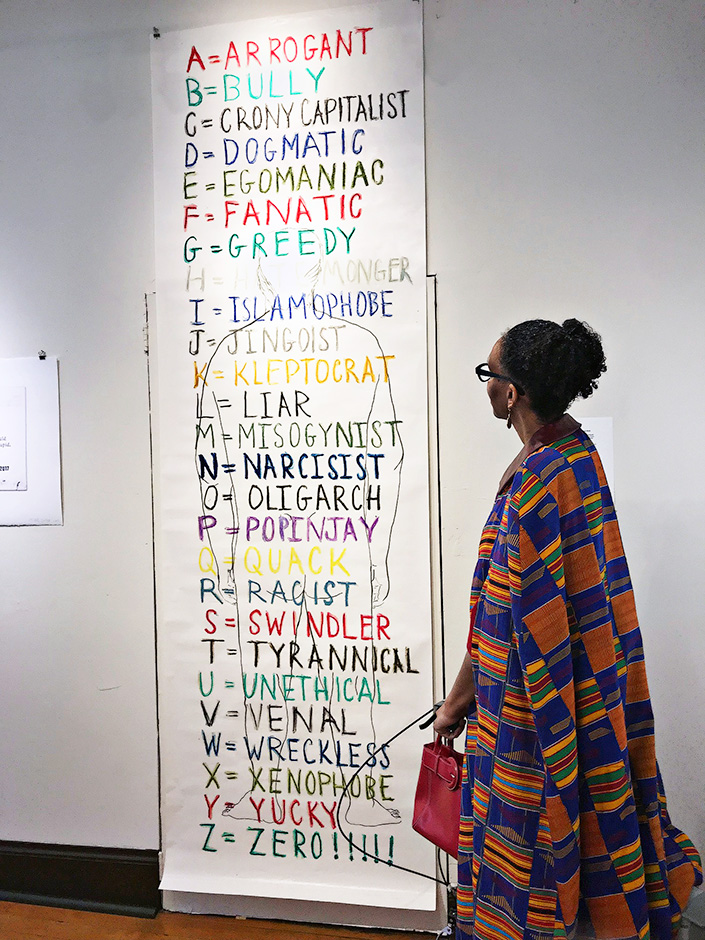 A = ARROGANT
B = BULLY
C = CRONY CAPITALIST
D = DOGMATIC
E = EGOMANIAC
F = FANATIC
G = GREEDY
H = MONGER
I = ISLAMOPHOBE
J = JINGOIST
K = KLEPTOCRAT
L = LIAR
M = MISOGYNIST
N = NARCISIST
O = OLIGARCH
P = POPINJAY
Q = QUACK
R = RACIST
S = SWINDLER
T = TYRANNICAL
U = UNETHICAL
V = VENAL
W = WRECKLESS
X = XENOPHOBE
Y = YUCKY
Z = ZERO!!!!!
2017